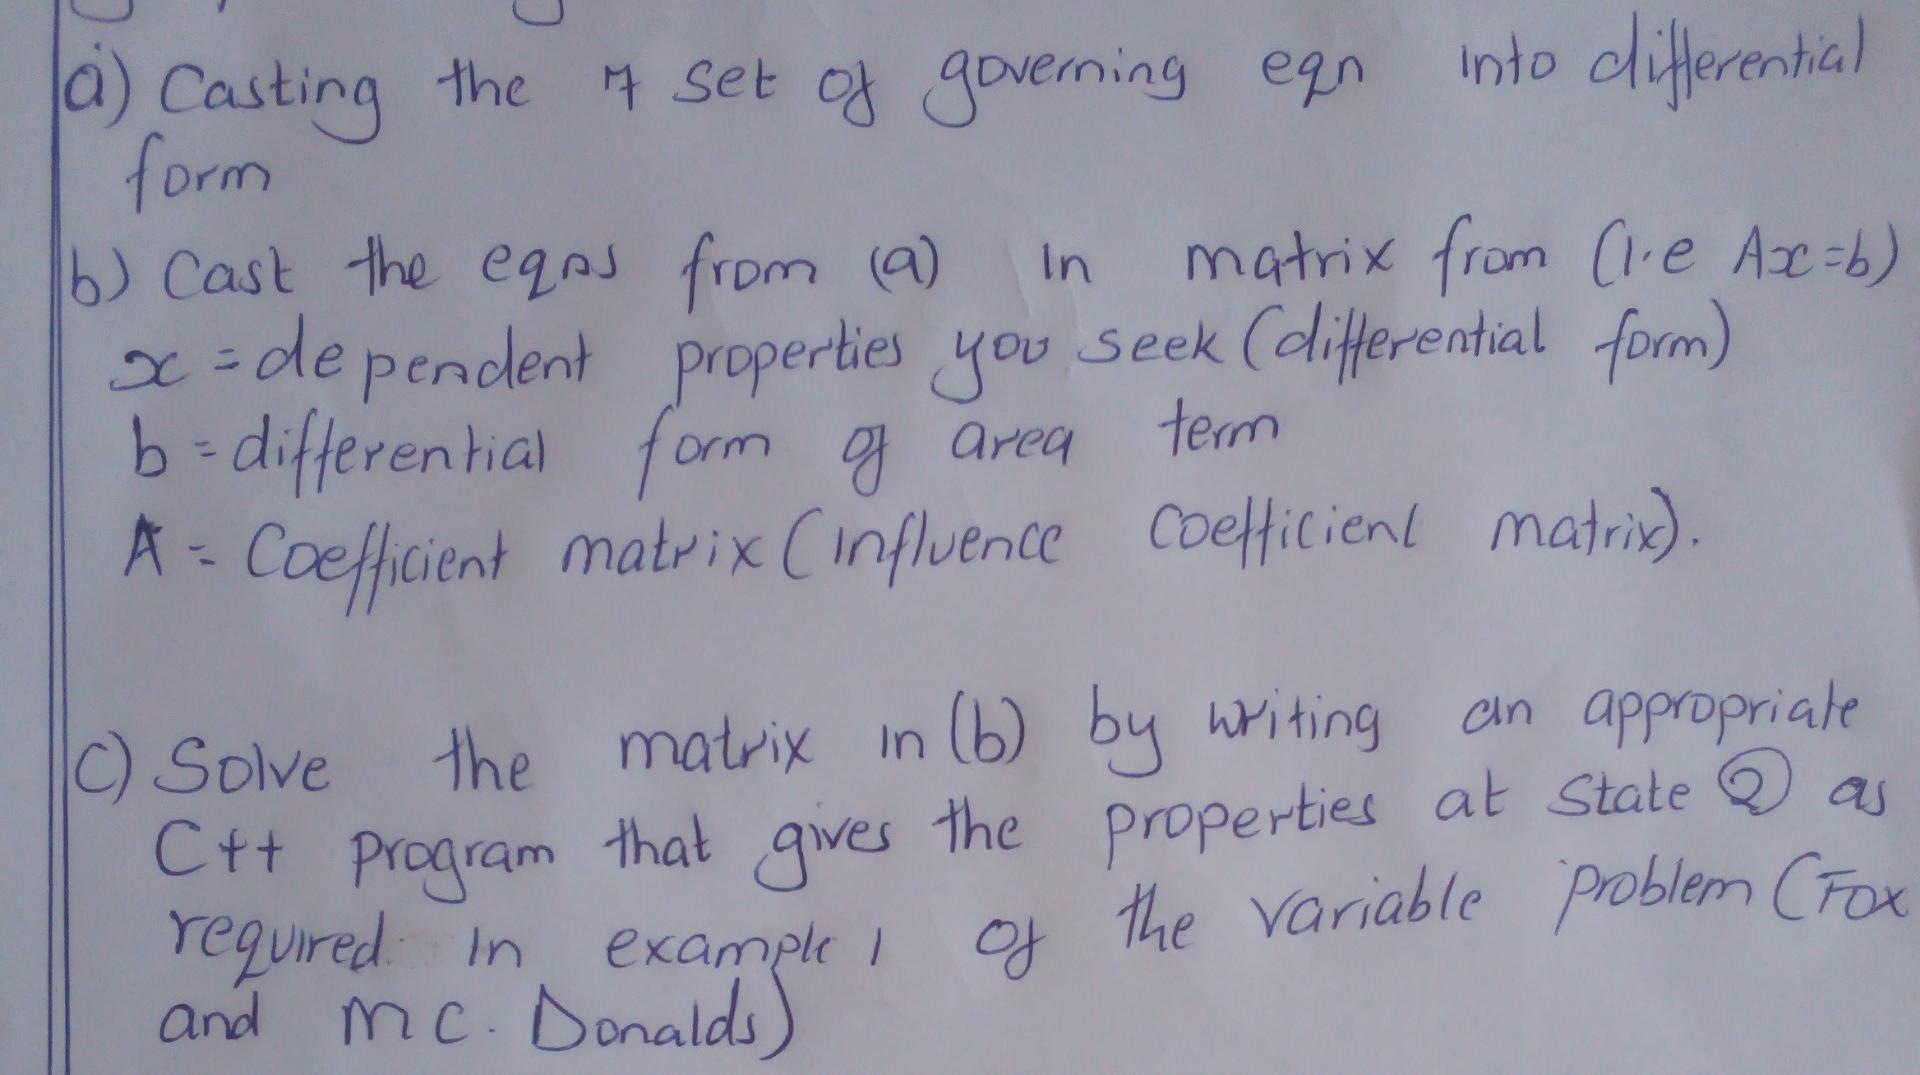 a) Casting the 7 set of governing eqn into differential
form
b) Cast the eqns from (a) in matrix from (i.e Ax=b)
x = dependent properties you seek (differential form)
b = differential form of area term
A = Coefficient matrix (influence coefficient matrix).
c) Solve the matrix in (b) by writing an appropriate
C++ program that gives the properties at state ② as
required in example 1 of the variable problem (Fox
and Mc. Donalds)